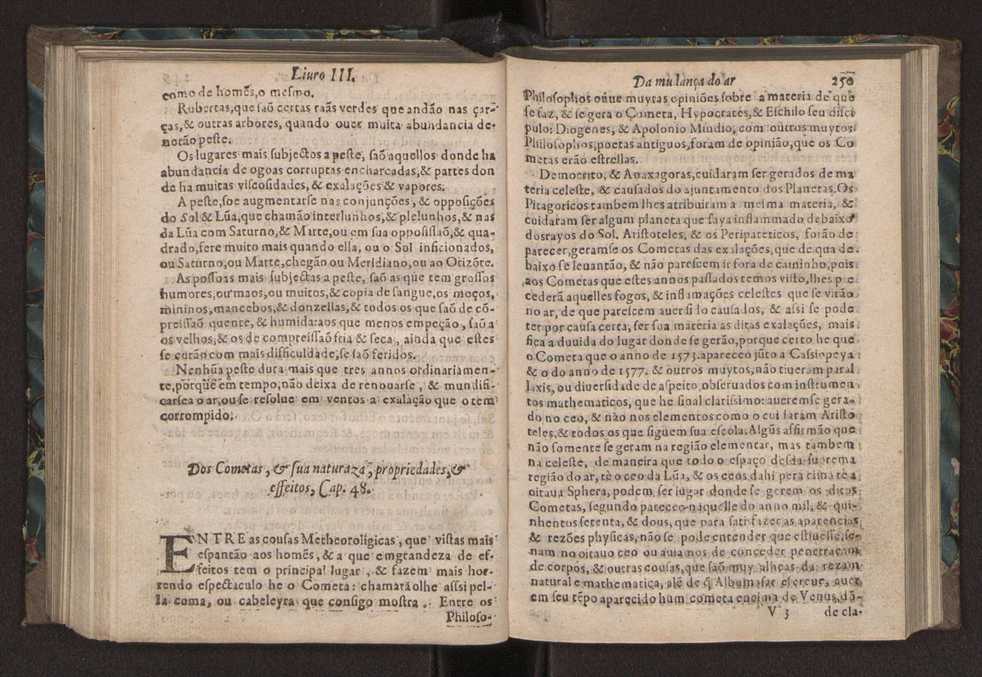 Liuro III.
como de homẽs, o mesmo.
Rubertas, que saõ certas raãs verdes que andão nas çar-
ças, & outras arbores, quando ouer muita abundancia de-
notão peste.
Os lugares mais subjectos a peste, saõ aquellos donde ha
abundancia de ogoas corruptas encharcadas, & partes don
de ha muitas viscosidades, & exalações & vapores.
A peste, soe augmentarse nas conjunções, & opposições
do Sol & Lũa, que chamão interlunhos, & plelunhos, & nas
da Lũa com Saturno, & Marte, ou em sua opposissaõ, & qua-
drado, fere muito mais quando ella, ou o Sol inficionados,
ou Saturno, ou Marte, chegão ou Meridiano, ou ao Orizõte.
As possoas mais subjectas a peste, saõ as que tem grossos
humores, ou maos, ou muitos, & copia de sangue, os moços,
mininos, mancebos, & donzellas, & todos os que saõ de cõ-
preissaõ quente, & humida: aos que menos empeção, saõ a
os velhos, & os de compreissaõ fria & seca, ainda que estes
se curão com mais difficuldade, se saõ feridos.
Nenhũa peste dura mais que tres annos ordinariamen-
te, porque em tempo, não deixa de renouarse, & mundifi-
carse a o ar, ou se resolue em ventos a exalação que o tem
corrompido.
Dos Cometas, & sua naturaza, propriedades, &
effeitos, Cap. 48.
ENTRE as cousas Metheorolígicas, que vistas mais
espantão aos homẽs, & a que em grandeza de ef-
feitos tem o principal lugar, & fazem mais hor-
rendo espectaculo he o Cometa: chamarãolhe assi pel-
la coma, ou cabeleyra que consigo mostra. Entre os
Philoso-
Da mudança do ar 250
Philosophos ouue muytas opiniões sobre a materia de que
se faz, & se gera o Cometa, Hypocrates, & Eschilo seu disci
pulo: Diogenes, & Apolonio Mindio, com outros muytos
Philosophos, poetas antiguos, foram de opinião, que os Co
metas erão estrellas.
Democrito, & Anaxagoras, cuidaram ser gerados de ma
teria celeste, & causados do ajuntamento dos Planetas. Os
Pitagoricos tambem lhes atribuiram a mesma materia, &
cuidaram ser algum planeta que saya inflammado debaixo
dos rayos do Sol. Aristoteles, & os Peripateticos, forão de
parecer, geramse os Cometas das exalações, que de qua de-
baixo se leuantão, & não parescem ir fora de caminho, pois
aos Cometas que estes annos passados temos visto, lhes pre
cederã aquelles fogos, & inflamações celestes que se virão
no ar, de que parescem auer sido causados, & assi se pode
ter por causa certa, ser sua materia as ditas exalações, mais
fica a duuida do lugar donde se gerão, porque certo he que
o Cometa que o anno de 1573. apareceo jũto a Cassiopeya
& o do anno de 1577. & outros muytos, não tiueram paral
laxis, ou diuersidade de aspeito, obseruados com instrumen
tos mathematicos, que he sinal clarissimo: aueremse gera-
do no ceo, & não nos elementos como o cuidaram Aristo
teles, & todos os que siguem sua escola. Algũs affirmão que
não somente se geram na região elementar, mas tambem
na celeste, de maneira que todo o espaço desda suprema
região do ar, tè o ceo da Lũa, & os ceos dahi pera cima tè a
oitaua Sphera, podem ser lugar donde se gerem os ditos
Cometas, segundo pareceo naquelle do anno mil, & qui-
nhentos setenta, & dous, que para satisfazer as aparencias
& rezões physicas, não se pode entender que estiuesse, se-
nam no oitauo ceo ou auiamos de conceder penetraçam
de corpos, & outras cousas, que saõ muy alheas da rezam
natural e mathematica, alẽ de q̃ Albumasar escreue, auer
em seu tẽpo aparecido hum cometa encima de Venus, dõ-
V 3 de cla-